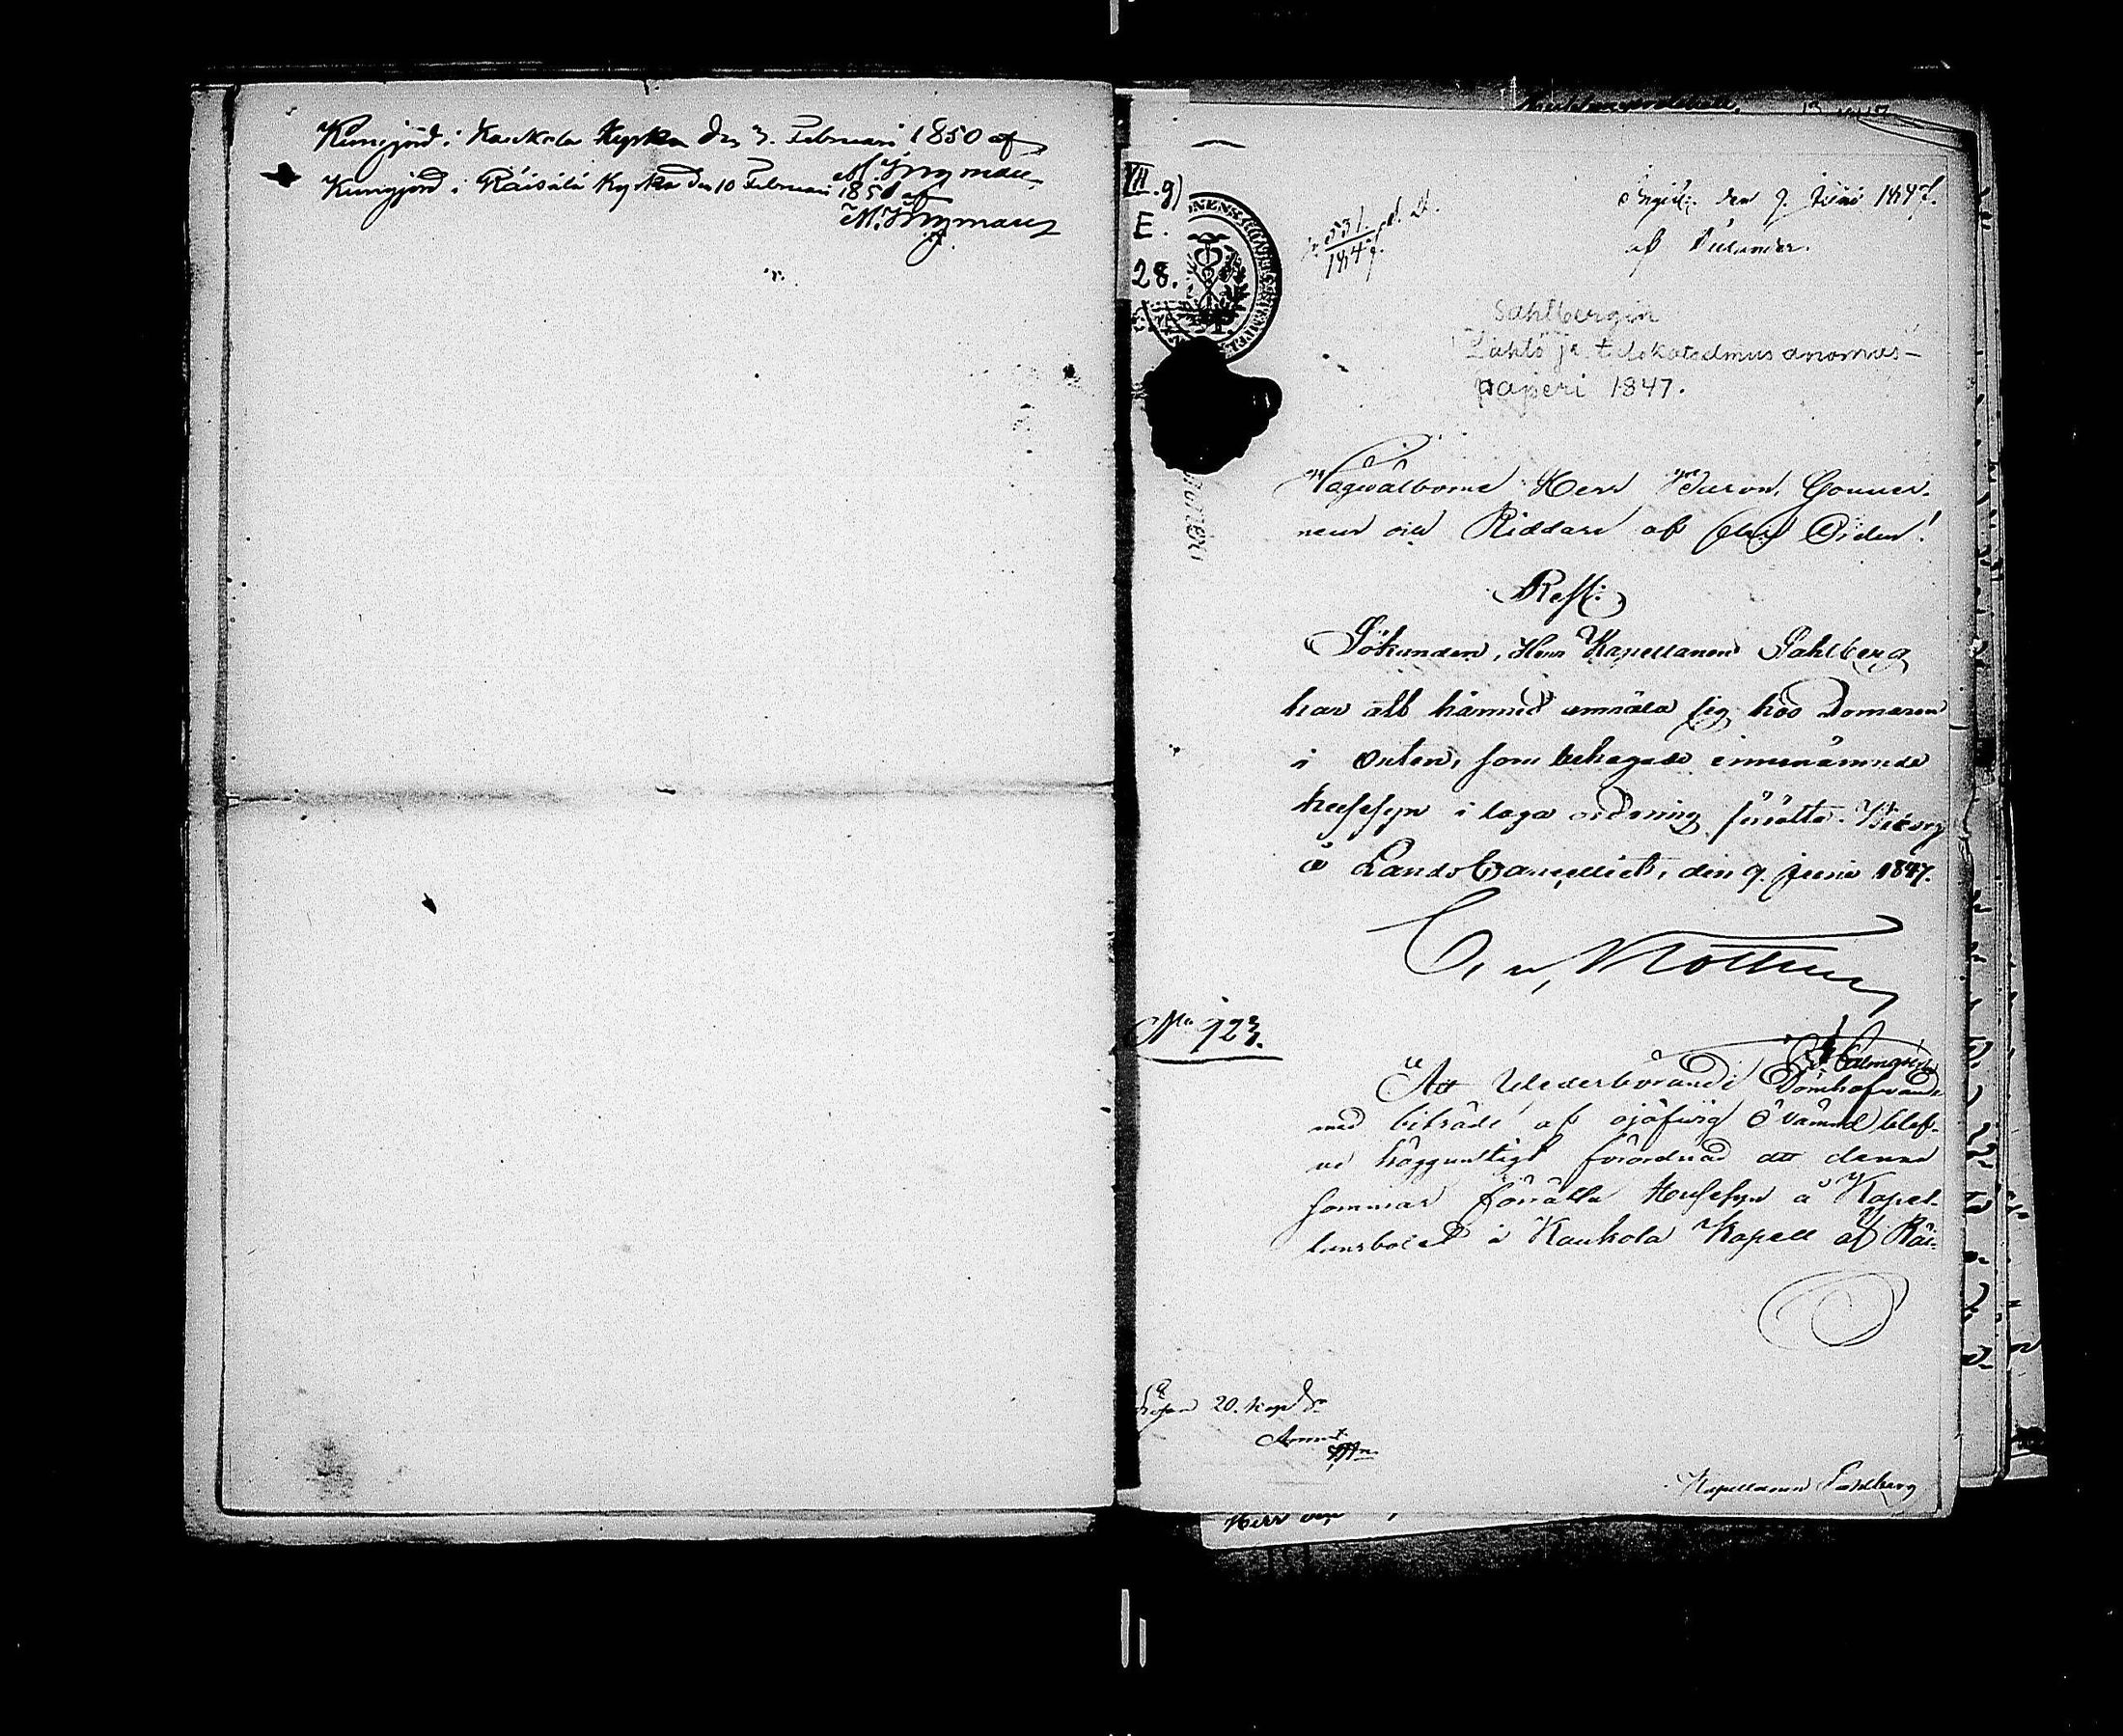 Kungjord i Kaukola Kyrka den 3. Februari 1850 af
M. Nymanⁿ
Kungjord i Räisälä Kyrka den 10 Februari 1850 af
VII. g)
E.
28.
531
1847.
Ingift. den 9. Junii 1847.
af
Sahlbergin
Lähtö ja talokatselmus anomus-
paperi 1847.
Högvälborne Herr Baron, Gouver-
neur och Riddare af flera Orden!
Resl:
Sökanden, Herr Kapellanen Sahlberg
har att härmed anmäla sig hos Domaren
i Orten, som behagade innenämnde
hussyn i laga ordning förrätta. Wiborg
å Landscancelliet, den 9. Junii 1847.
No 923.
Att Wederbörande Domhafvande
med biträde af ojäfvig Nämnd blef-
ve höggunstigt förordnad att denna
sommar förrätta Hussyn å Kapel-
lansbolet i Kaukola Kapell af Räi-
Lösen 20. kop Sr
Kapellanen Sahlberg
Herr